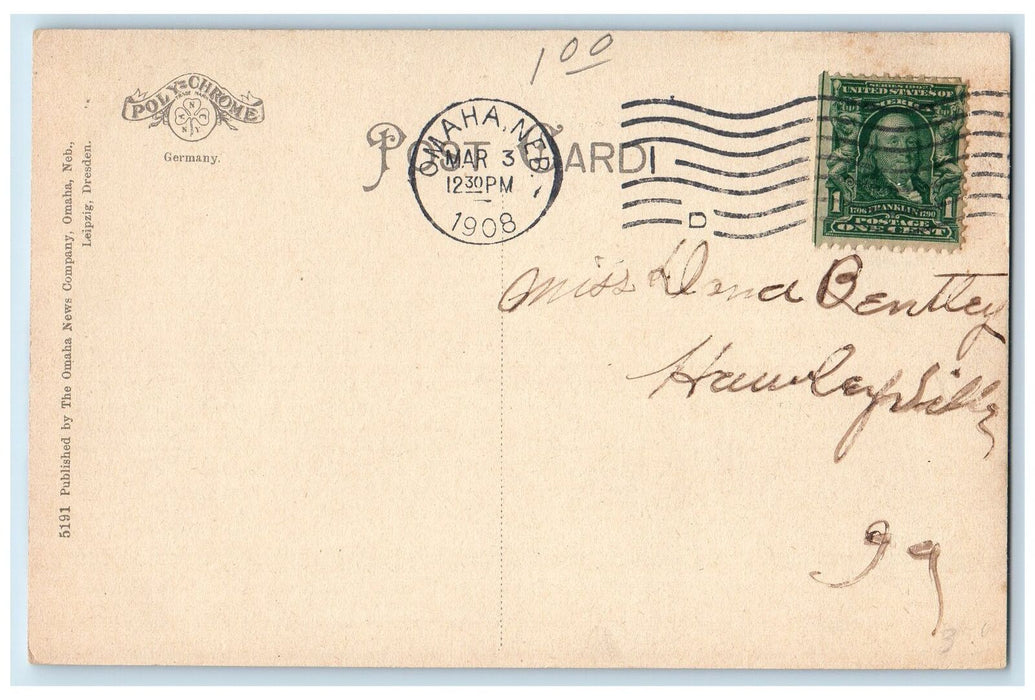 1 00
POLY-CHROME
TRADE MARK
N Y
Germany.
5191 Published by The Omaha News Company, Omaha, Neb.,
Leipzig, Dresden.
POST CARD
OMAHA, NEB.
MAR 3
12 30 PM
1908
D
SERIES 1902
UNITED STATES OF
AMERICA
1 1
1706 FRANKLIN 1790
POSTAGE
ONE CENT
Miss Dena Bentley
Hawleyville
Ia